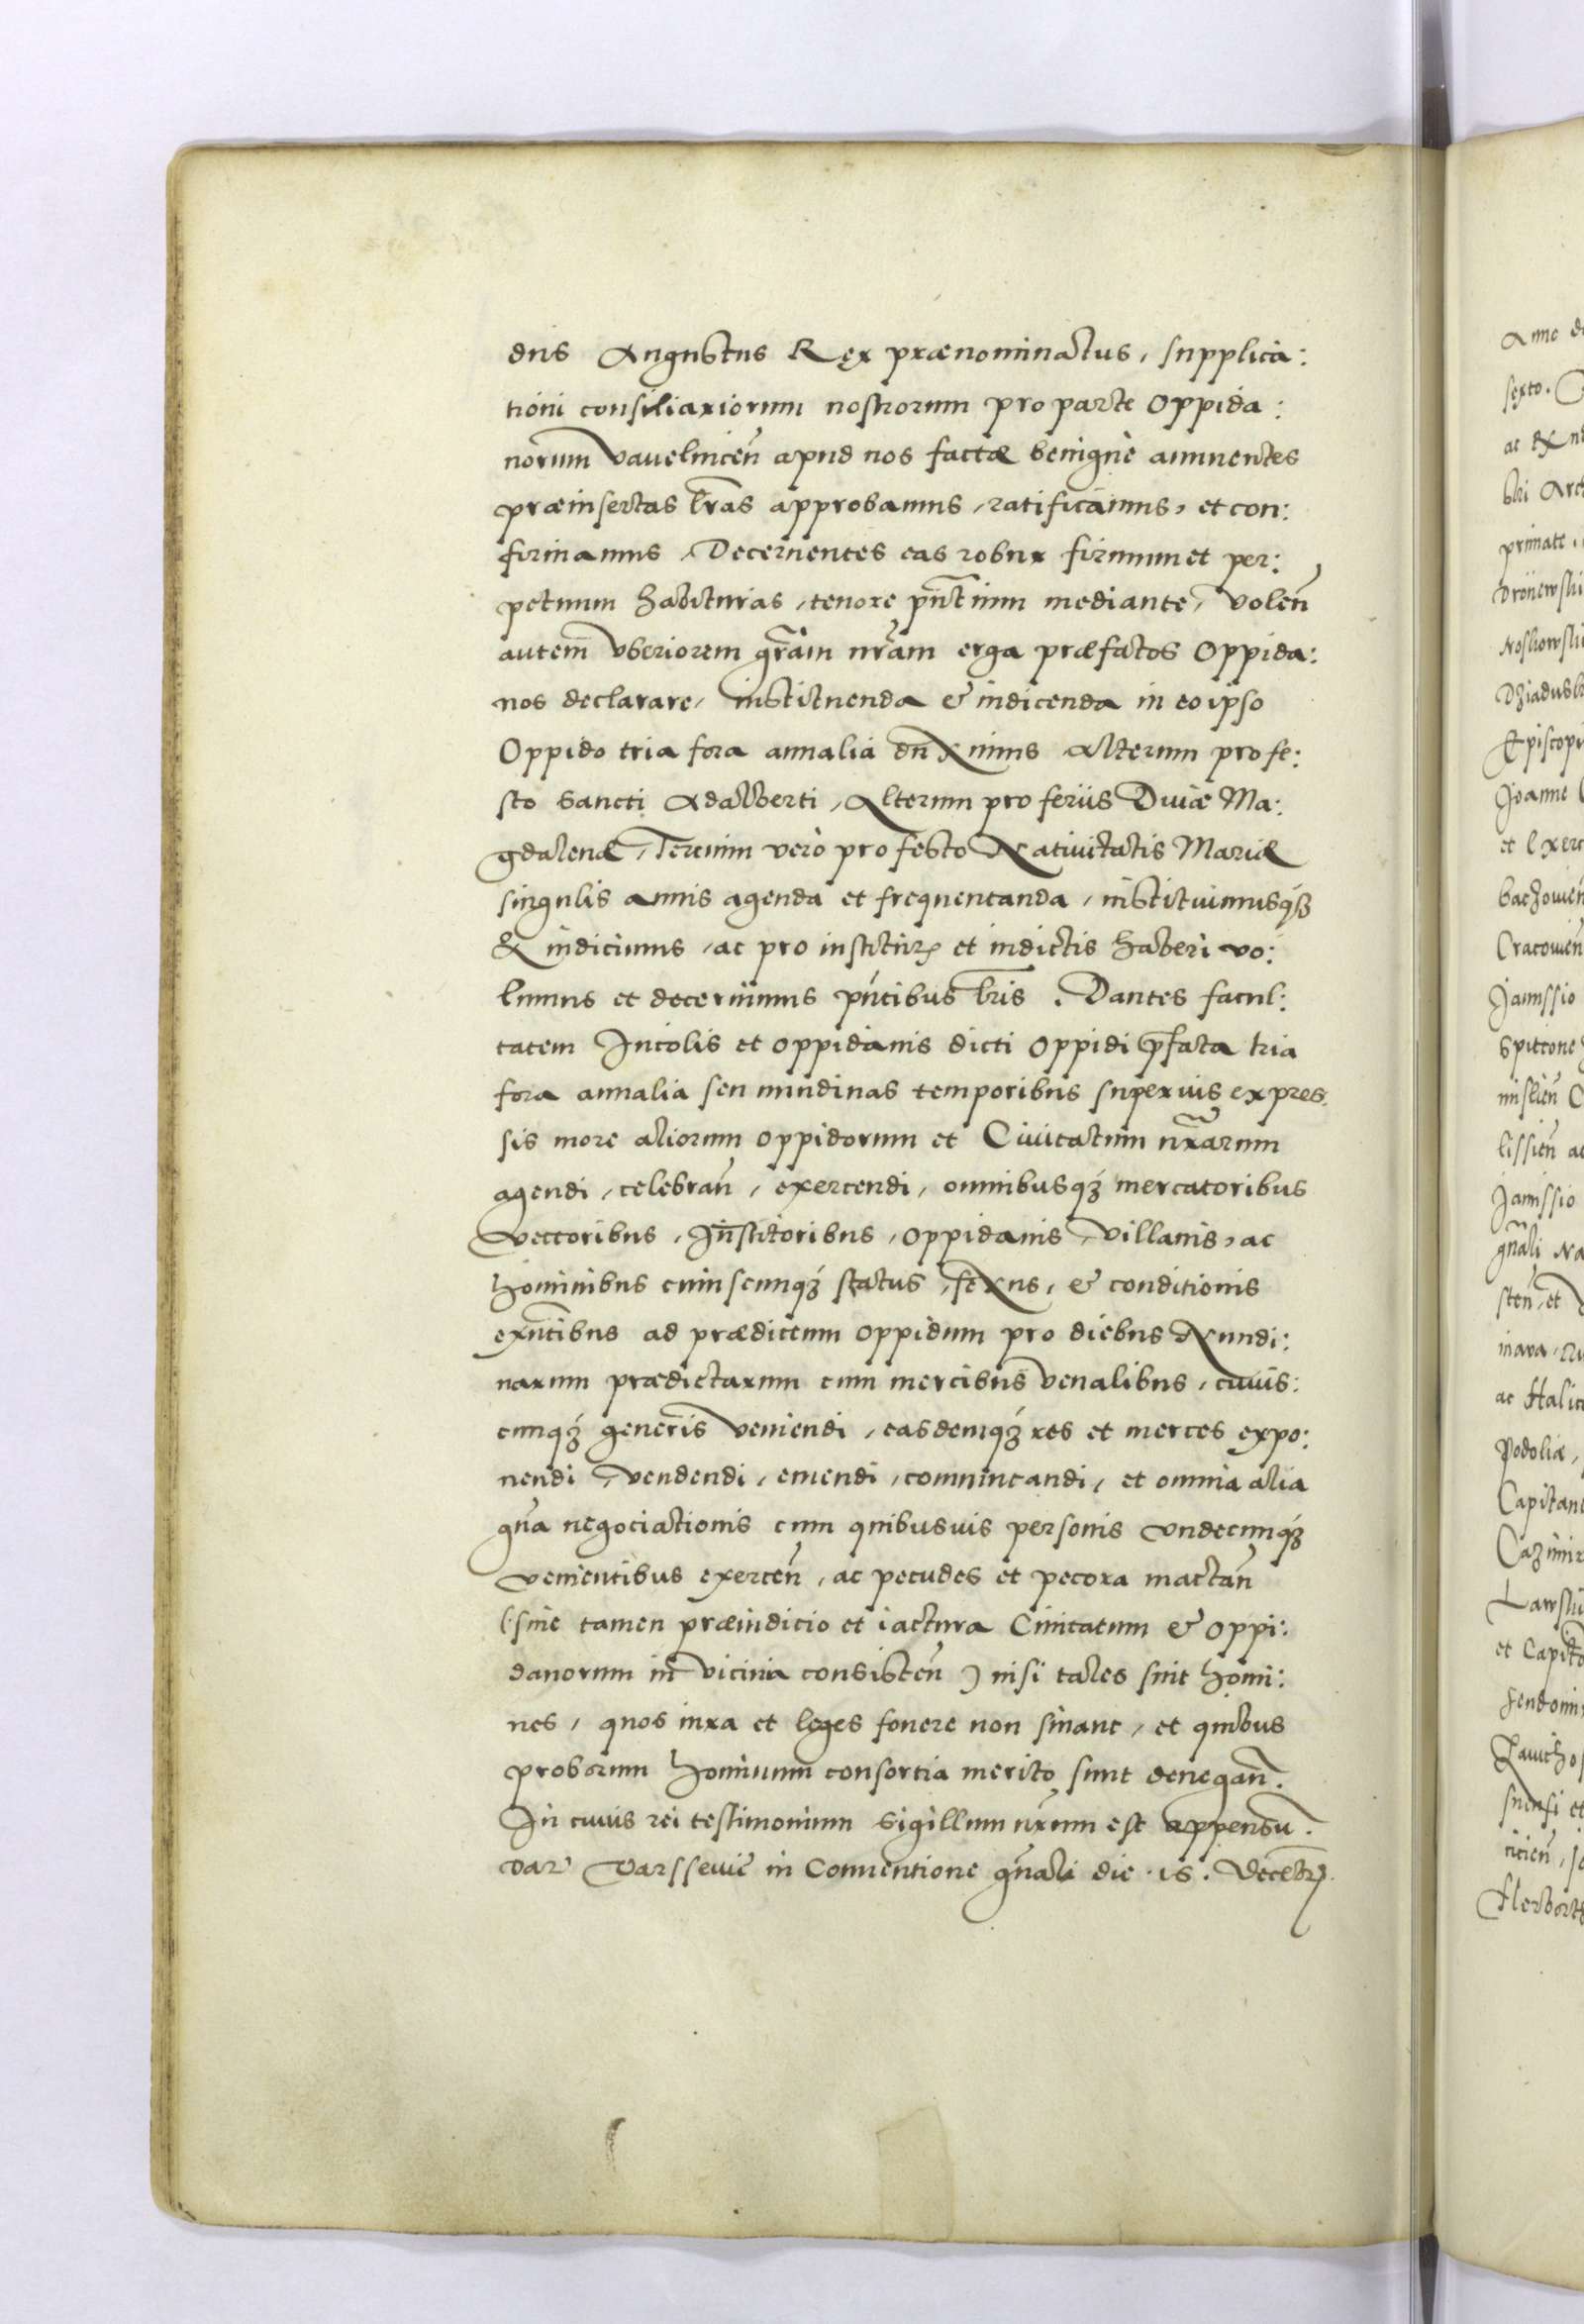 dus Augustus Rex prænominatus, supplica:
tioni consiliariorum nostrorum pro parte Oppida:
norum Vauelnicen̄ apud nos factæ benignè annuentes
præinsertas l̄ras approbamus, ratificamus, et con:
firmamus, Decernentes eas robur firmum et per:
petuum habituras, tenore pn̄tium mediante, volen̄
autem vberiorem gr̄am nr̄am erga præfatos Oppida:
nos declarare, instituenda & indicenda in eo ipso
Oppido tria fora annalia duximus Alterum pro fe:
sto Sancti Adalberti, Alterum pro feriis Diuæ Ma:
gdalenæ, Tercium verò pro festo Natiuitatis Mariæ
singulis annis agenda et frequentanda, instituimusq́ꝫ
& indicimus, ac pro institutꝭ et indictis haberi vo:
lumus et decernimus pn̄tibus l̄ris. Dantes facul:
tatem Incolis et oppidanis dicti Oppidi p̄fata tria
fora annalia seu nundinas temporibus superius expres:
sis more aliorum oppidorum et Ciuitatum nr̄arum
agendi, celebran̄, exercendi, omnibusq́ꝫ mercatoribus
vectoribus, Institoribus, oppidanis, villanis, ac
hominibus cuiuscunq́ꝫ status, sexus, & conditionis
exn̄tibus ad prædictum oppidum pro diebus Nundi:
narum prædictarum cum mercibus venalibus, cuius:
cunq́ꝫ generis veniendi, easdemq́ꝫ res et merces expo:
nendi, vendendi, emendi, commutandi, et omnia alia
gn̄a negociationis cum quibusuis personis vndecunq́ꝫ
venientibus exercen̄, ac pecudes et pecora mactan̄
(sine tamen præiudicio et iactura Ciuitatum & oppi:
danorum in vicinia consisten̄) nisi tales sint homi:
nes, quos iura et leges fouere non sinant, et quibus
proborum hominum consortia merito sunt denegan̄.
In cuius rei testimonium Sigillum nr̄um est appensū.
Dat̄ Varsseuie in Conuentione gn̄ali die .18. Decēbrꝭ.
Anno d
sexto.
ac
bli Arc
primate,
Droiewski
Noskowski
Dziadusk
Episcopi
Joanne
et Exerc
bachouien̄
Cracouien̄
Janussio
Spitcone
misłien̄ C
lissien̄ ac
Janissio
gn̄ali Na
sten̄, et
mara,
ac Halic
Podoliæ,
Capitane
Cazimir
Lawski
et Capita
Sendomir
Zauicho
et
ticien̄,
Herborte